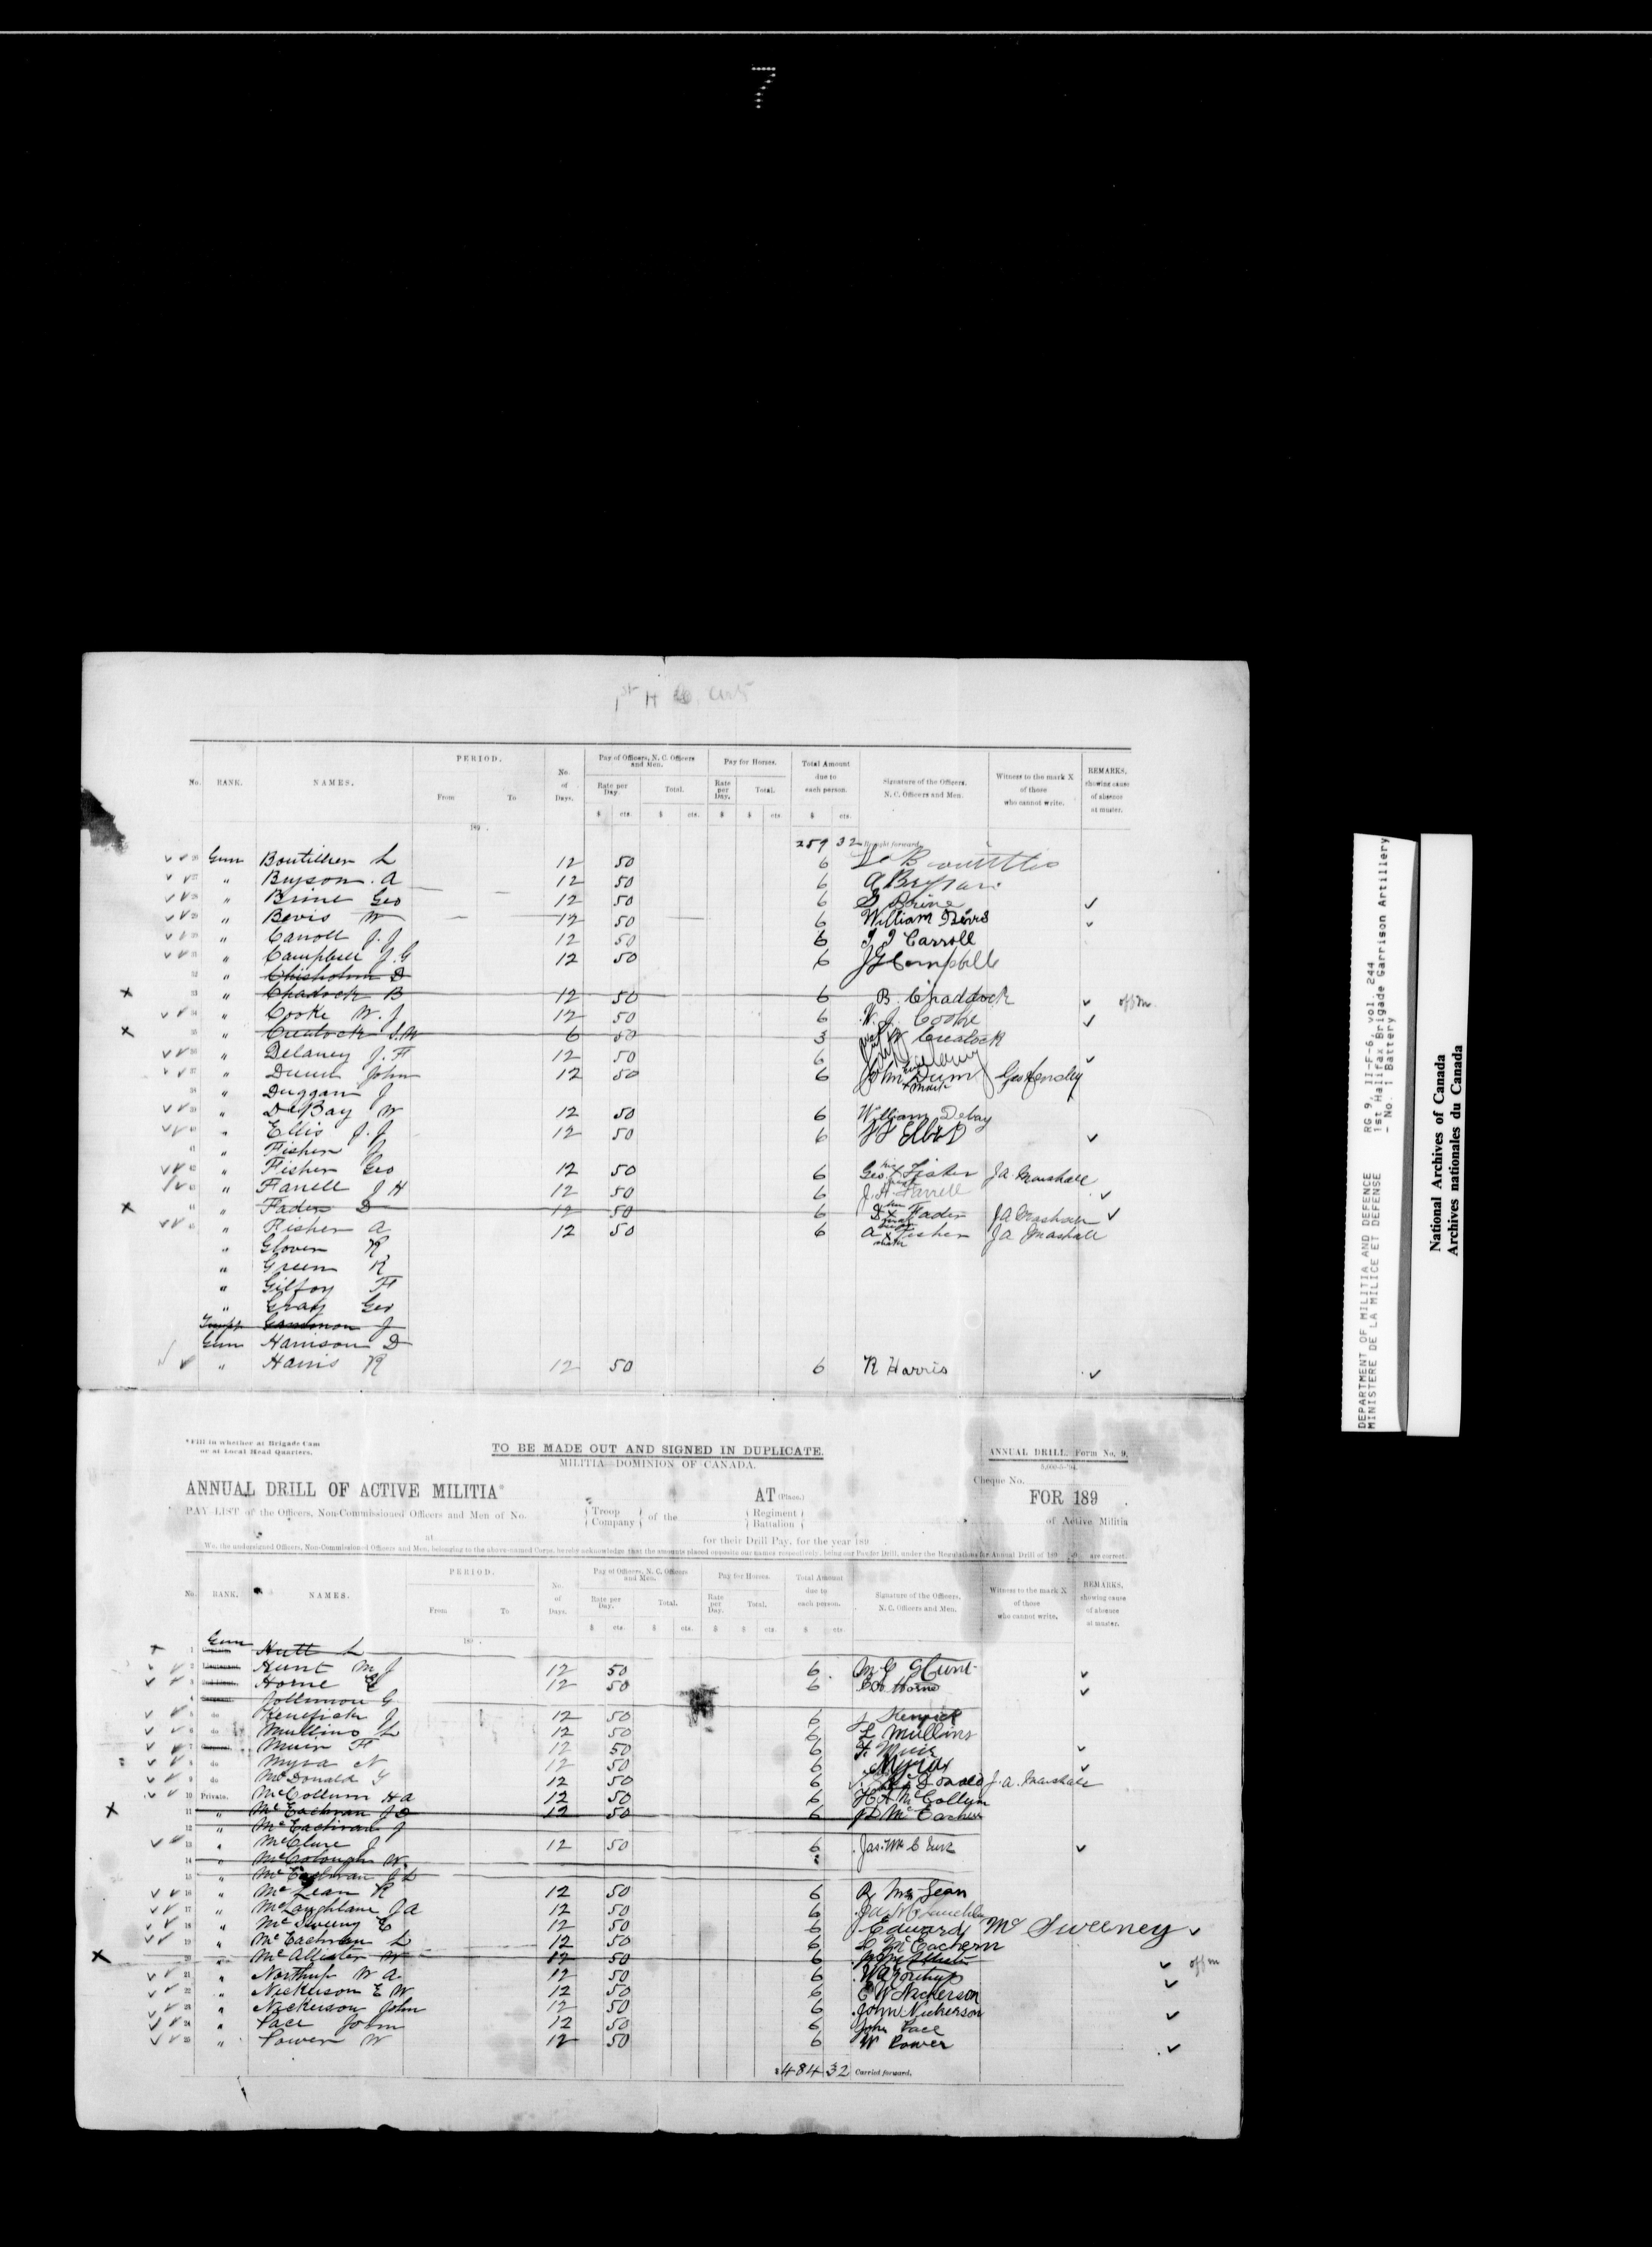 7
1st H
No. RANK. NAMES. PERIOD. From To No. of Days. Pay of Officers, N. C. Officers and Men. Rate per Day. Total. Pay for Horses. Rate per Day. Total. Total Amount due to each person. Signature of the Officers, N. C. Officers and Men. Witness to the mark X of those who cannot write. REMARKS, showing cause of absence at muster.
$ cts. $ cts. $ $ cts. $ cts.
189 .
259 32 Brought forward,
26 Gunr Boutillier L 12 50 6
27 " Bryson. A 12 50 6 A Bryson
28 " Brine Geo 12 50 6 G Brine
29 " Bevis W 12 50 6 William Bevis
30 " Carroll J. J 12 50 6 J J Carroll
31 " Campbell J. G 12 50 6 J G Campbell
32 " Chisholm D
33 " Chadock B 12 50 6 B. Chaddock
34 " Cooke W. J 12 50 6 W. J. Cooke
35 " Crealock J.W 6 50 3 Crealock
36 " Delaney J. F 12 50 6
37 " Dunn John 12 50 6 John Dunn
38 " Duggan J
39 " DeBay W 12 50 6 William Debay
40 " Ellis J. J 12 50 6 J J Ellis
41 " Fisher J
42 " Fisher Geo 12 50 6 Geo his X mark Fisher J A Marshall
43 " Farrell J H 12 50 6 J. H Farrell
44 " Fader D 12 50 6 D X Fader J A Marshall
45 " Fisher A 12 50 6 A X Fisher J A Marshall
" Glover R
" Green R
" Gilfoy F
" Gray Geo
J
Gunr Harrison D
" Harris R 12 50 6 R Harris
*Fill in whether at Brigade Cam or at Local Head Quarters.
TO BE MADE OUT AND SIGNED IN DUPLICATE.
ANNUAL DRILL. Form No. 9.
MILITIA DOMINION OF CANADA.
Cheque No.
ANNUAL DRILL OF ACTIVE MILITIA* AT (Place.) FOR 189 .
PAY LIST of the Officers, Non-Commissioned Officers and Men of No. { Troop Company } of the { Regiment Battalion } of Active Militia
at for their Drill Pay, for the year 189 .
We, the undersigned Officers, Non-Commissioned Officers and Men, belonging to the above-named Corps, hereby acknowledge that the amounts placed opposite our names respectively, being our Pay for Drill, under the Regulations for Annual Drill of 189 are correct.
No. RANK. NAMES. PERIOD. From To No. of Days. Pay of Officers, N. C. Officers and Men. Rate per Day. Total. Pay for Horses. Rate per Day. Total. Total Amount due to each person. Signature of the Officers, N. C. Officers and Men. Witness to the mark X of those who cannot write. REMARKS, showing cause of absence at muster.
$ cts. $ cts. $ $ cts. $ cts.
189 .
1 Gunr Hutt L
2 Hunt M J 12 50 6 Hunt
3 Horne 12 50 6 Horne
4 Jollimore G
5 do Kenefick J 12 50 6 J
6 do Mullins L 12 50 6 L Mullins
7 Muir F 12 50 6 F Muir
8 do Myra N 12 50 6 Myra
9 do McDonald 12 50 6 McDonald J. A. Marshall
10 Private. McCollum H A 12 50 6 H A McCollum
11 " McEachran J D 12 50 6 J D McEachern
12 " McEachran J
13 " McClure J 12 50 6 Jas. McClure
14 " McColough W.
15 " McEachran J L
16 " McLean R 12 50 6 R McLean
17 " McLaughlane J A 12 50 6
18 " McSweeny E 12 50 6 Edward McSweeney
19 " McEachren L 12 50 6 L McEachern
20 " McAllister W 12 50 6
21 " Northup W A 12 50 6 W A Northup
22 " Nickerson E W 12 50 6 E W Nickerson
23 " Nickerson John 12 50 6 John Nickerson
24 " Pace John 12 50 6 John Pace
25 " Power W 12 50 6 W Power
$484 32 Carried forward.
DEPARTMENT OF MILITIA AND DEFENCE RG 9, II-F-6, vol. 244
MINISTERE DE LA MILICE ET DEFENSE 1st Halifax Brigade Garrison Artillery
- No. 1 Battery
National Archives of Canada
Archives nationales du Canada